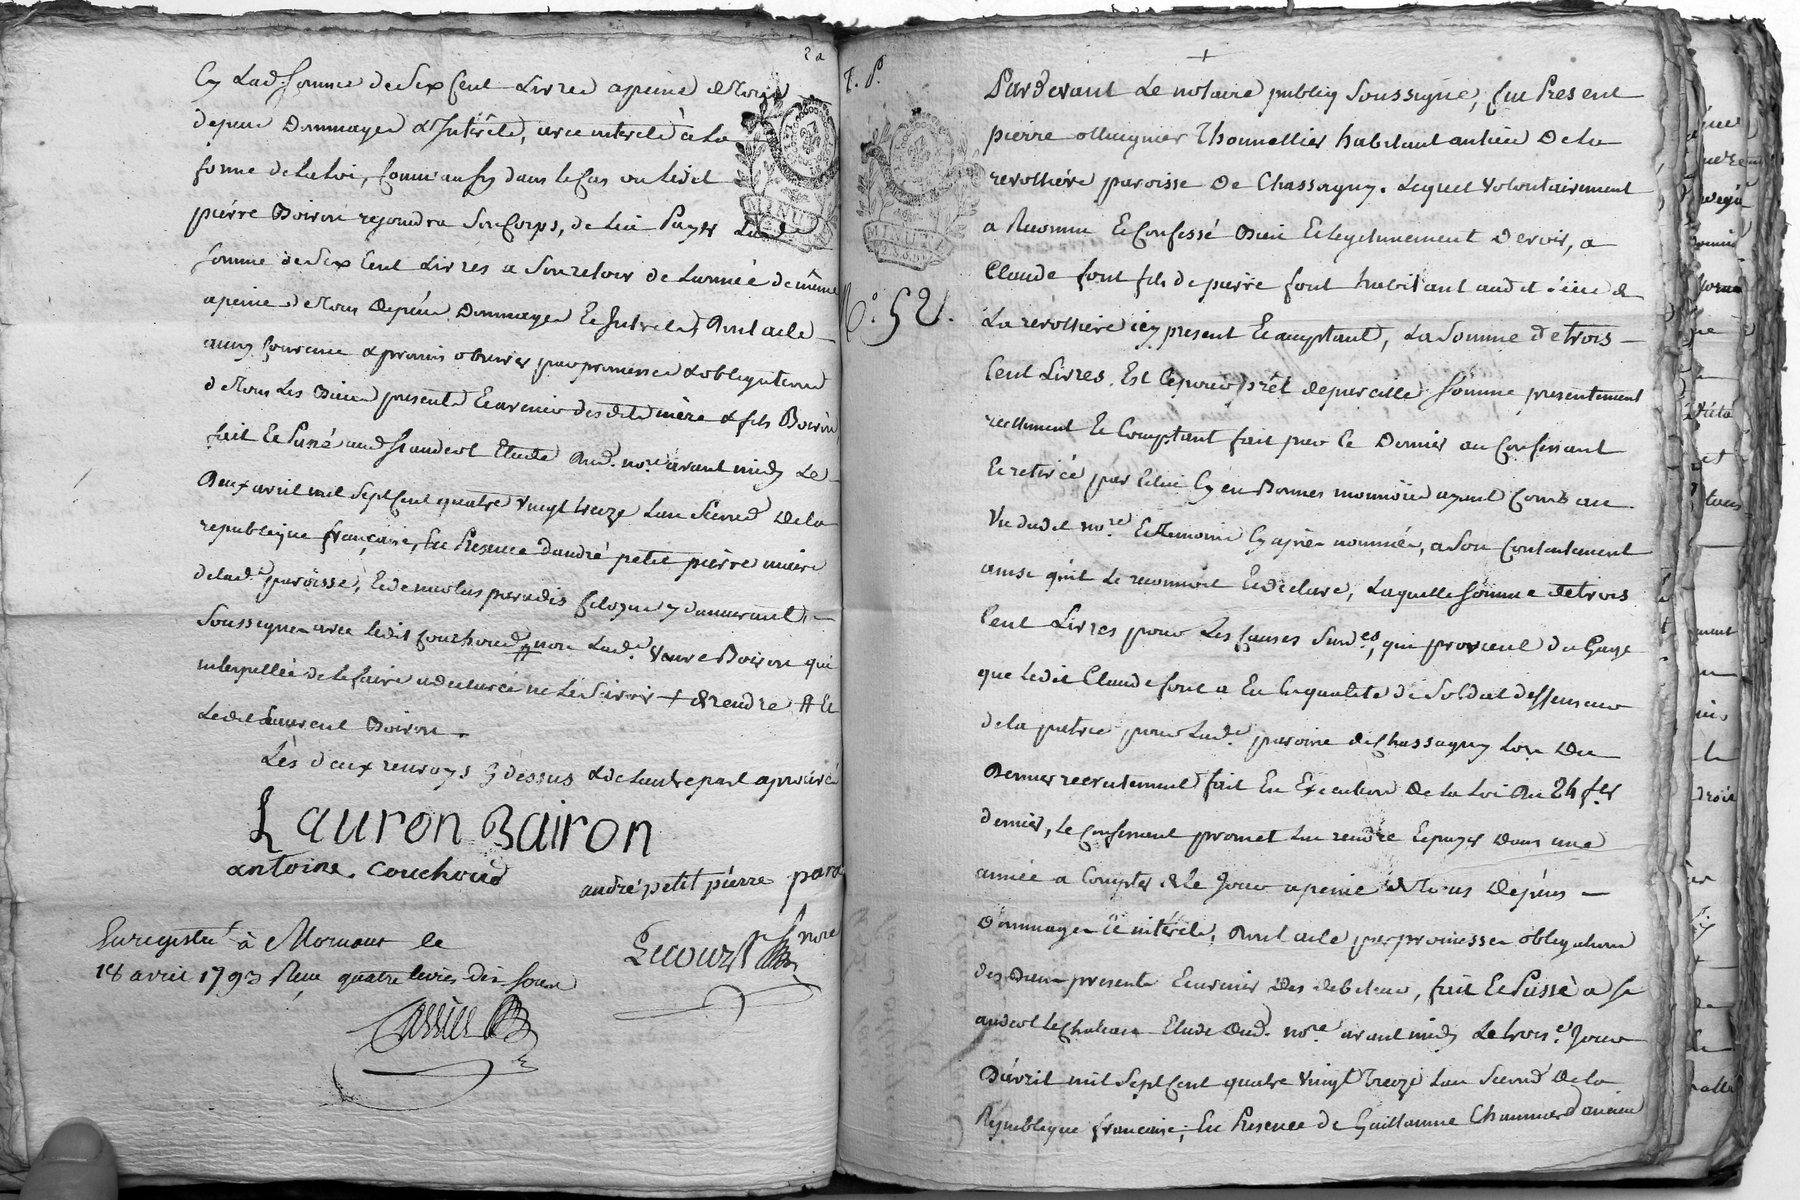 Cy Lad. somme de Six Cent Livres a peine de tous
depens Dommages & Intérêts, avec intérêts à la
forme de la Loi, Comm'aussy dans le Cas ou ledit
pierre Boiron rejoindra Son Corps, de lui Payer Lade
Somme de Six Cent Livres a Son retour de L'armée de même
a peine de tous depens Dommages Et Intérêts, Dont acte
ainsy Convenu & promis observer par promesses & obligations
de tous Les Biens presents Et avenir desdits mère & fils Boiron
fait Et Passé aud St andeol Etude Dud. nore avant midy Le
Deux avril mil Sept Cent quatre vingt treize L'an Second De la
republique française, En Presence d'andré petit pierre maire
de lad.e paroisse, Et de nicolas paradis
Soussignés avec ledit Couchoud non Lade. veuve Boiron qui
interpellée de le faire a declaré ne le Savoir + & rendre # Et
Ledit Laurent Boiron.
Lès deux renvoys cy dessus & de L'autre part aprouvés
Lauron Bairon
antoine. couchoud
andré petit pierre para
Lecourt nore
Enregistré à Mornant le
18 avril 1793 Reçu quatre livres dix sous
T. P.
MINUTE
N.º 52.
Pardevant Le notaire publiq Soussigné, fut Present
pierre Thonnellier habitant au lieu De la
revolliere paroisse De Chassagny. Lequel volontairement
a Reconnu Et Confessé Bien Et legitimement Devoir, a
Claude font fils de pierre font habitant audit Lieu de
La revolliere icy present Et acceptant, La Somme de trois
Cent Livres. Est Ce pour prêt de pareille Somme presentement
reellement Et Comptant fait par Ce Dernier au Confessant
Et retirée par Celui Cy en Bonnes monnoies ayant Cours au
Vu dudit nore. Et temoins Cy après nommés, a Son Contentement
ainsi qu'il Le reconnoit Et declare, Laquelle Somme de trois
Cent Livres pour Les Causes Susd.es, qui provient du Gage
que Ledit Claude font a Eu En qualité de Soldat deffenseur
de la patrie pour Lade. paroisse de Chassagny Lors Du
Dernier recrutement fait En Execution De la Loi du 24 f.er
dernier, Le Confessant promet Lui rendre Et payer Dans une
année a Compter de Ce Jour a peine de tous Depens
Dommages Et intérêts, Dont acte par promesses obligations
des Biens presents Et avenir Des debiteur, fait Et Passé a St
andeol Le Chateau Etude Dud. nore avant midy Le trois.e Jour
D'avril mil Sept Cent quatre vingt Treize L'an Second De la
Republique française, En Presence de Guillaume Chaumier d'ancien